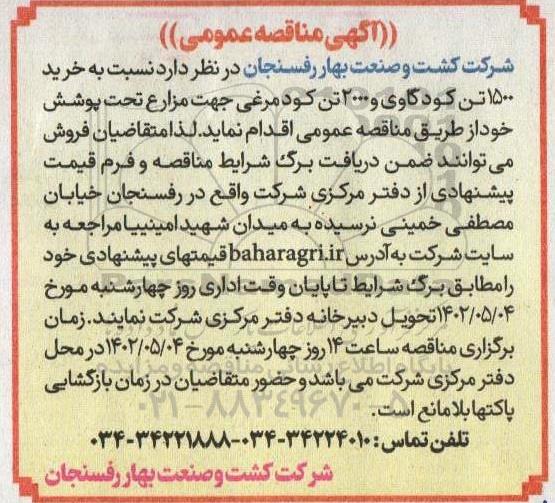 ((آگهی مناقصه عمومی))
شرکت کشت و صنعت بهار رفسنجان در نظر دارد نسبت به خرید
۱۵۰۰ تن کود گاوی و ۲۰۰۰ تن کود مرغی جهت مزارع تحت پوشش
خود از طریق مناقصه عمومی اقدام نماید. لذا متقاضیان فروش
می توانند ضمن دریافت برگ شرایط مناقصه و فرم قیمت
پیشنهادی از دفتر مرکزی شرکت واقع در رفسنجان خیابان
مصطفی خمینی نرسیده به میدان شهید امینیـیا مراجعه به
سایت شرکت به آدرس baharagri.ir قیمتهای پیشنهادی خود
را مطابق برگ شرایط تا پایان وقت اداری روز چهارشنبه مورخ
۱۴۰۲/۰۵/۰۴ تحویل دبیرخانه دفتر مرکزی شرکت نمایند. زمان
برگزاری مناقصه ساعت ۱۴ روز چهارشنبه مورخ ۱۴۰۲/۰۵/۰۴ در محل
دفتر مرکزی شرکت می باشد و حضور متقاضیان در زمان بازگشایی
پاکتها بلامانع است.
۰۲۱-۸۸۳۴۹۶۷۰-۵
تلفن تماس: ۰۳۴-۳۴۲۲۴۰۱۰-۰۳۴-۳۴۲۲۱۸۸۸
شرکت کشت و صنعت بهار رفسنجان